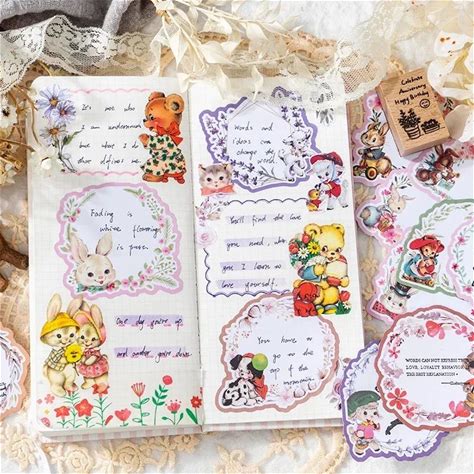 It's not who
I am underneath
but what I do
that defines me.
Fading is
while flowering
is past.
One day you're up
and another you're down.
Words and
ideas can
change the
world.
You'll find the love
you need, who
you I learn to
love yourself.
You have
go to the
top of the
mountain
Celebrate
Anniversary
Happy Birthday
WORDS CAN NOT EXPRESS TRUE
LOVE, LOYALTY BEHAVIOR
THE BEST EXPLANATION